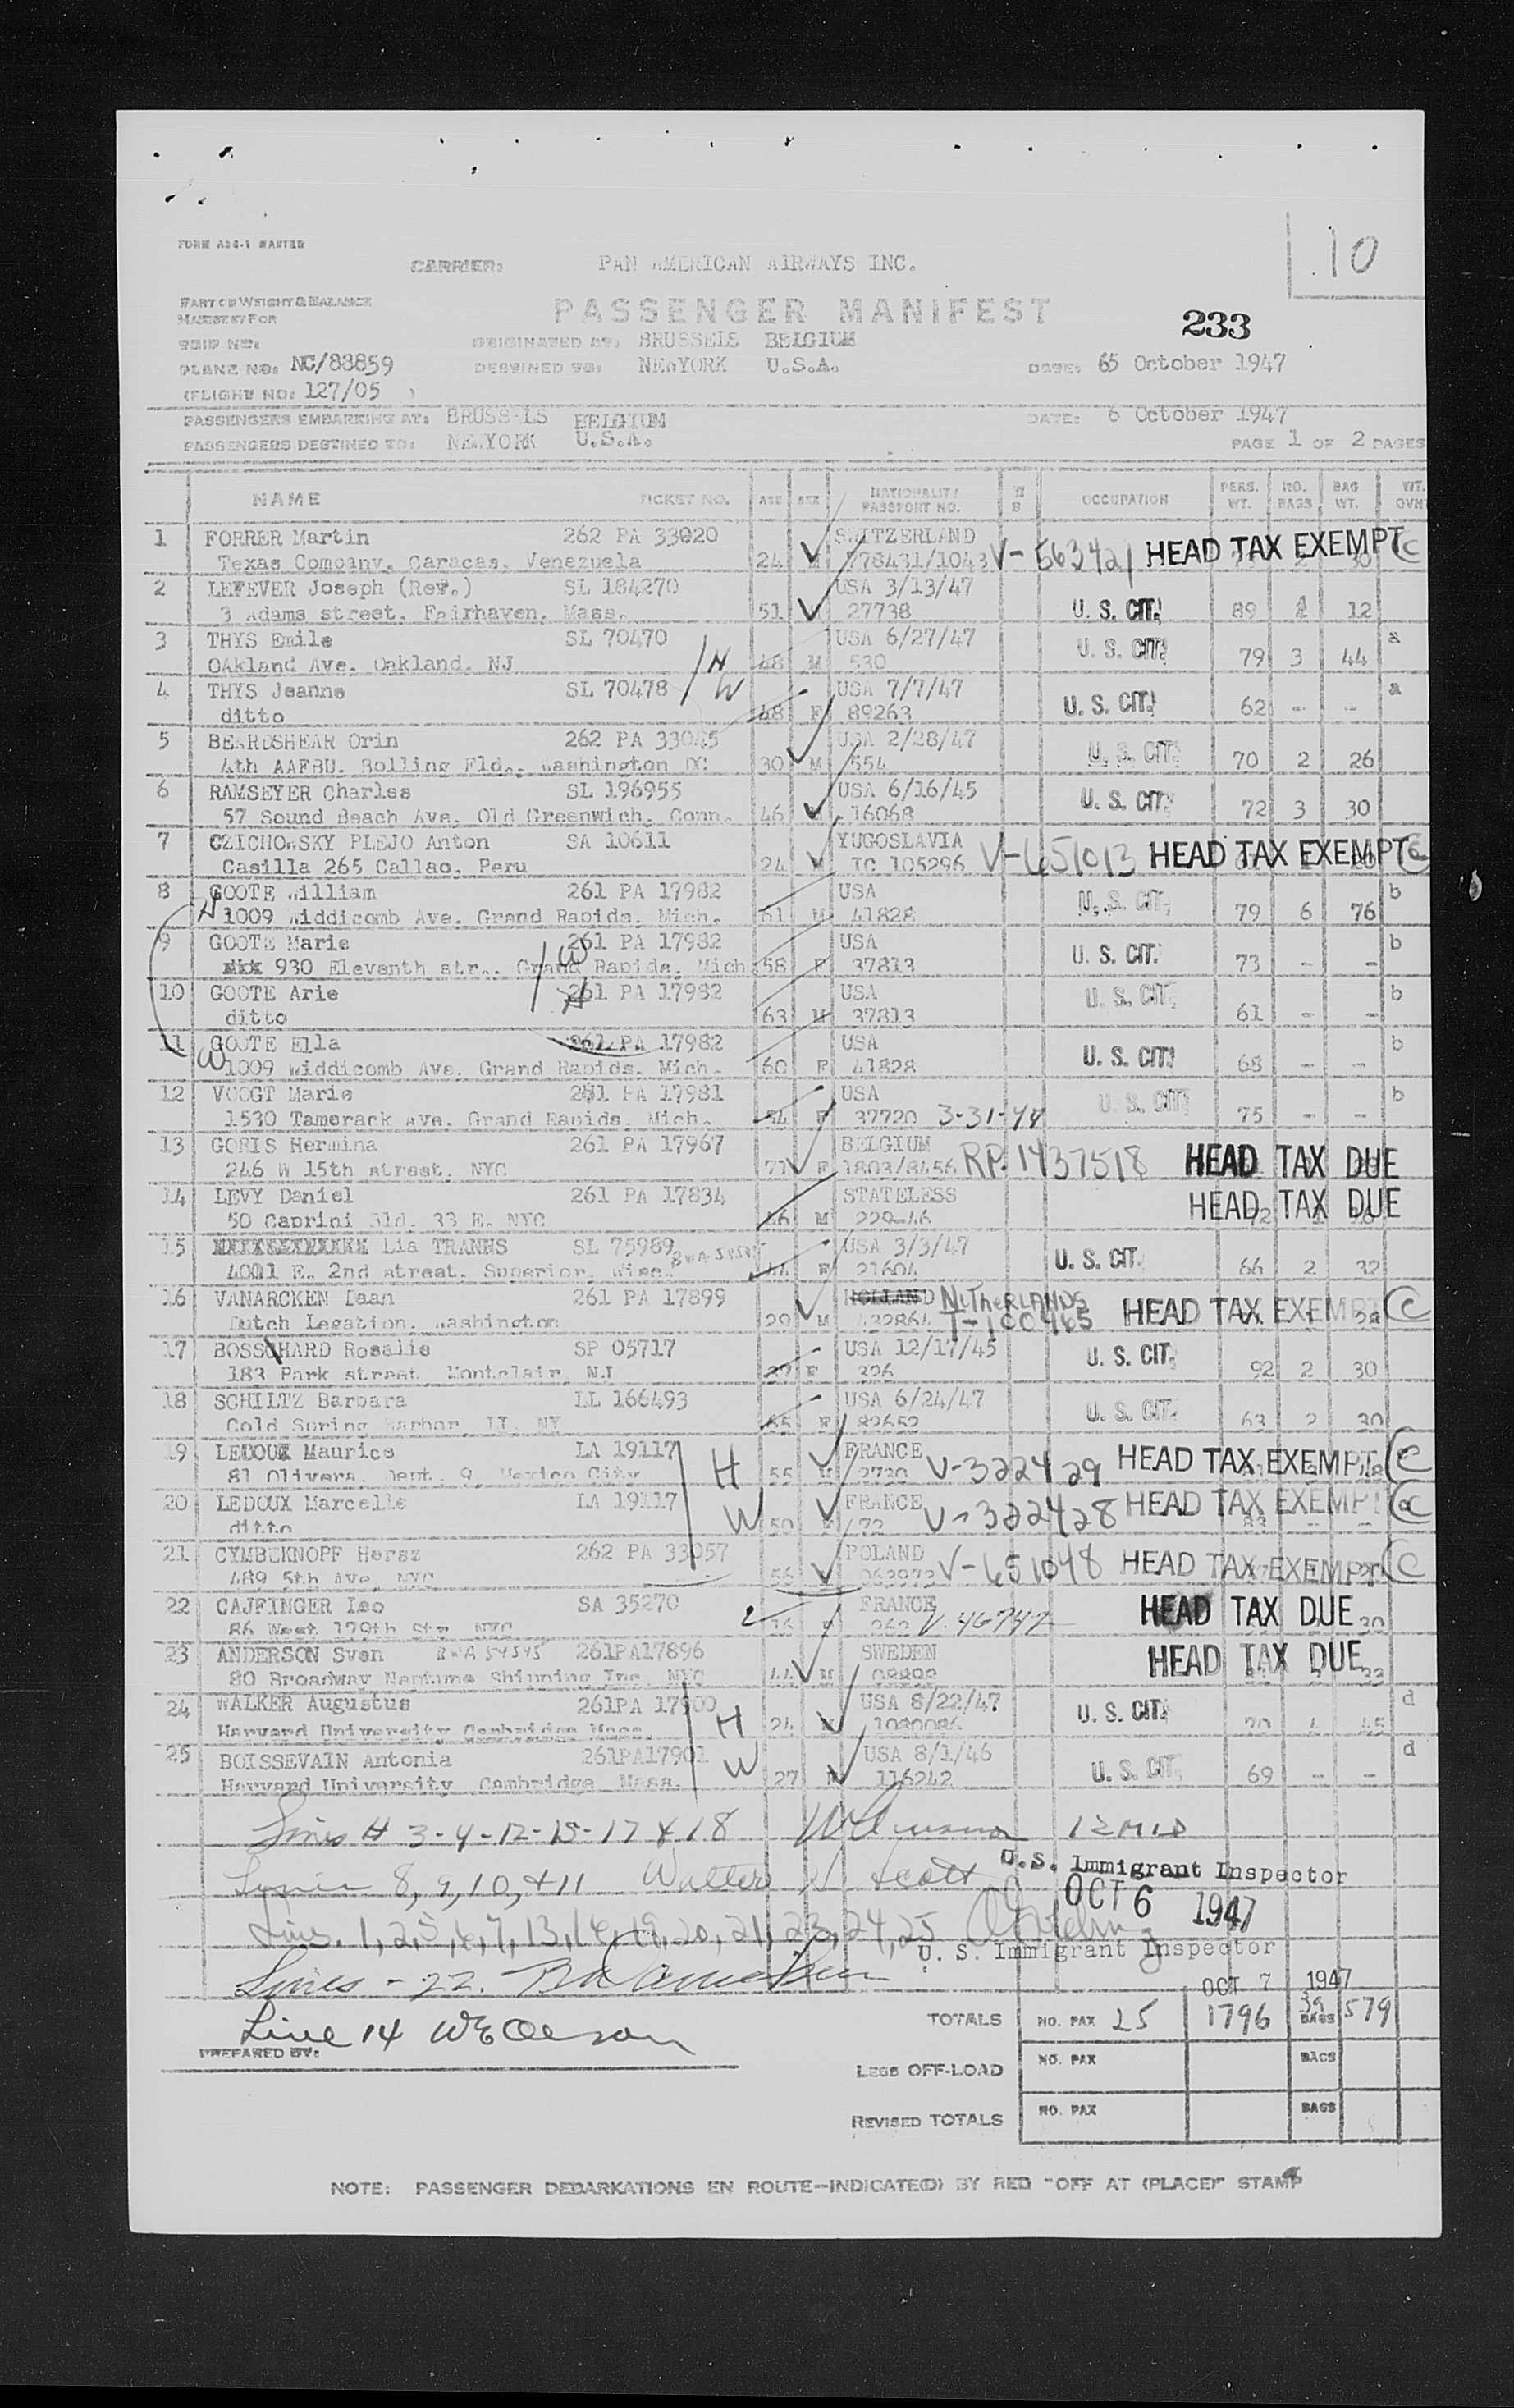 FORM A20-1 MASTER
10
CARRIER: PAN AMERICAN AIRWAYS INC.
PART OF WEIGHT & BALANCE
MANIFEST FOR
PASSENGER MANIFEST
233
TRIP NO:
ORIGINATED AT: BRUSSELS BELGIUM
PLANE NO: NC/88859
DESTINED TO: NEWYORK U.S.A.
DATE: 65 October 1947
(FLIGHT NO: 127/05 )
PASSENGERS EMBARKING AT: BRUSSELS BELGIUM
DATE: 6 October 1947
PASSENGERS DESTINED TO: NEWYORK U.S.A.
PAGE 1 OF 2 PAGES
NAME TICKET NO. AGE SEX NATIONALITY PASSPORT NO. OCCUPATION PERS. WT. NO. BAGS BAG WT. WT.
1 FORRER Martin 262 PA 33020 SWITZERLAND
Texas Company, Caracas, Venezuela 24 778431/1043 V-563421 HEAD TAX EXEMPT C
2 LEFEVER Joseph (Rev.) SL 184270 USA 3/13/47
3 Adams street, Fairhaven, Mass. 51 27738 U. S. CIT. 89 12
3 THYS Emile SL 70470 USA 6/27/47 a
OAkland Ave. Oakland. NJ H 48 M 530 U. S. CIT. 79 3 44
4 THYS Jeanne SL 70478 USA 7/7/47 a
ditto W 48 F 89263 U. S. CIT. 62 - --
5 BEARDSHEAR Orin 262 PA 33045 USA 2/28/47
4th AAFBU. Bolling Fld., Washington DC 30 M 554 U. S. CIT. 70 2 26
6 RAMSEYER Charles SL 196955 USA 6/16/45
57 Sound Beach Ave, Old Greenwich, Conn. 46 M 16068 U. S. CIT. 72 3 30
7 CZICHOWSKY PLEJO Anton SA 10611 YUGOSLAVIA
Casilla 265 Callao, Peru 24 M TC 105296 V-651013 HEAD TAX EXEMPT C
8 GOOTE William 261 PA 17982 USA b
H 1009 Widdicomb Ave. Grand Rapids, Mich. 61 M 41828 U. S. CIT. 79 6 76
9 GOOTE Marie 261 PA 17982 USA b
930 Eleventh str., Grand Rapids, Mich 58 F 37813 U. S. CIT. 73 - -
10 GOOTE Arie 261 PA 17982 USA b
ditto H 63 M 37813 U. S. CIT. 61 - -
11 GOOTE Ella 261 PA 17982 USA b
W 1009 Widdicomb Ave. Grand Rapids. Mich. 60 F 41828 U. S. CIT. 68 -- --
12 VOOGT Marie 261 PA 17981 USA b
1530 Tamarack Ave. Grand Rapids. Mich. 54 F 37720 3-31-47 U. S. CIT. 75 - -
13 GORIS Hermina 261 PA 17967 BELGIUM
246 W 15th street, NYC 71 F 1803/8456 RP. 1437518 HEAD TAX DUE
14 LEVY Daniel 261 PA 17834 STATELESS
50 Caprini Bld. 33 E. NYC 46 M 229-46 HEAD TAX DUE
15 Lia TRANNS SL 75989 USA 3/3/47
4001 E. 2nd street. Superior, Wisc. 44 F 21604 U. S. CIT. 66 2 32
16 VANARCKEN Daan 261 PA 17899 HOLLAND NETHERLANDS
Dutch Legation, Washington 29 M 432864 T-100965 HEAD TAX EXEMPT C
17 BOSSCHARD Rosalie SP 05717 USA 12/17/45
183 Park street Montclair, NJ 37 F 326 U. S. CIT. 92 2 30
18 SCHILTZ Barbara LL 166493 USA 6/24/47
Cold Spring Harbor, LI, NY 55 F 82652 U. S. CIT. 63 2 30
19 LEDOUX Maurice LA 19117 FRANCE
81 Olivera. Dept. 9. Mexico City H 55 M 2730 V-322429 HEAD TAX EXEMPT C
20 LEDOUX Marcelle LA 19117 FRANCE
ditto W 50 F 472 V-322428 HEAD TAX EXEMPT C
21 CYMBEKNOPF Hersz 262 PA 33057 POLAND
489 5th Ave. NYC 56 V-651048 HEAD TAX EXEMPT C
22 CAJFINGER Leo SA 35270 FRANCE
86 West 179th Str. NYC 262 V.46747 HEAD TAX DUE 30
23 ANDERSON Sven 261PA17896 SWEDEN
80 Broadway Neptune Shipping Inc. NYC 44 M HEAD TAX DUE
24 WALKER Augustus 261PA 17900 USA 8/22/47 d
Harvard University Cambridge Mass. H 24 M 1080086 U. S. CIT. 70 4 45
25 BOISSEVAIN Antonia 261PA17901 USA 8/1/46 d
Harvard University Cambridge Mass. W 27 F 116242 U. S. CIT. 69 -- --
Lines # 3-4-12-15-17 & 18 12 MID
U.S. Immigrant Inspector
Lines 8, 9, 10, & 11 Walter H Scott
OCT 6 1947
Lines. 1, 2, 5, 6, 7, 13, 16, 19, 20, 21, 23, 24, 25
U. S. Immigrant Inspector
Lines - 22.
OCT 7 1947
Line 14 WE Oleson
PREPARED BY:
TOTALS NO. PAX 25 1796 39 BAGS 579
LESS OFF-LOAD NO. PAX BAGS
REVISED TOTALS NO. PAX BAGS
NOTE: PASSENGER DEBARKATIONS EN ROUTE—INDICATE(D) BY RED "OFF AT (PLACE)" STAMP